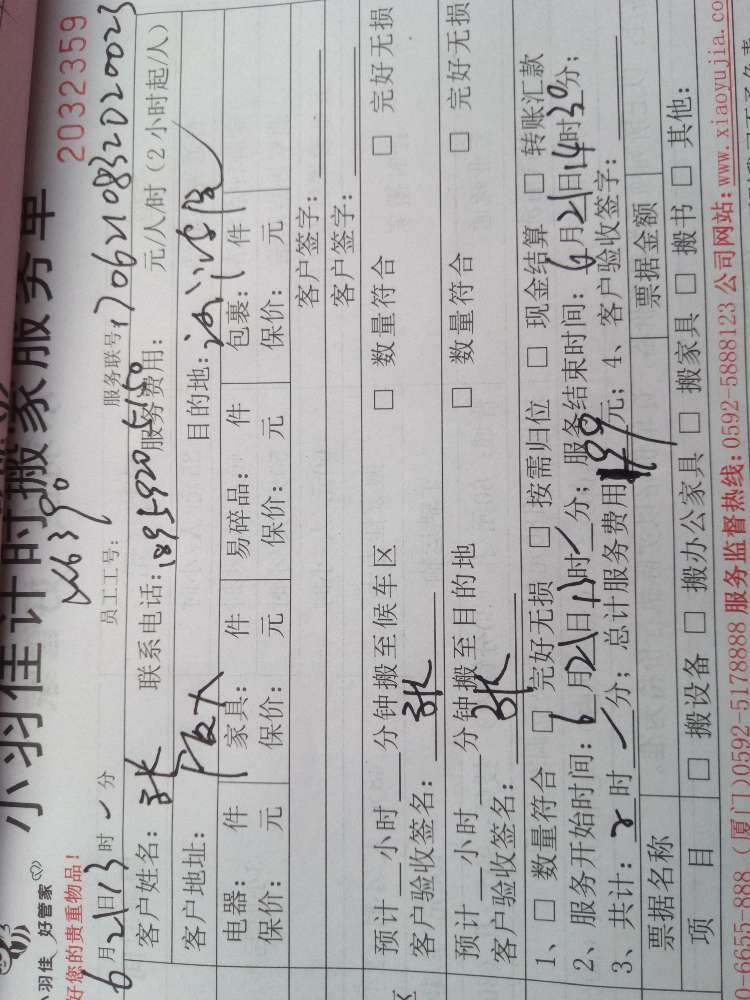 小羽佳计时搬家服务单
2032359
小羽佳 好管家
好您的贵重物品!
6月21日13时 分 员工工号: 服务联号:
客户姓名:张 联系电话: 服务费用: 元/人/时(2小时起/人)
客户地址: 目的地:
电器: 件 家具: 件 易碎品: 件 包裹: 件
保价: 元 保价: 元 保价: 元 保价: 元
客户签字:
客户签字:
预计 小时 分钟搬至候车区 □ 数量符合 □ 完好无损
客户验收签名:张
预计 小时 分钟搬至目的地 □ 数量符合 □ 完好无损
客户验收签名:张
1、□ 数量符合 □ 完好无损 □ 按需归位 □ 现金结算 □ 转账汇款
2、服务开始时间:6月21日13时 分;服务结束时间:6月21日14时30分;
3、共计:2时 分;总计服务费用 元;4、客户验收签字:
票据名称 票据金额
项 目 □ 搬设备 □ 搬办公家具 □ 搬家具 □ 搬书 □ 其他:
0-6655-888 (厦门)0592-5178888 服务监督热线:0592-5888123 公司网站:www.xiaoyujia.co